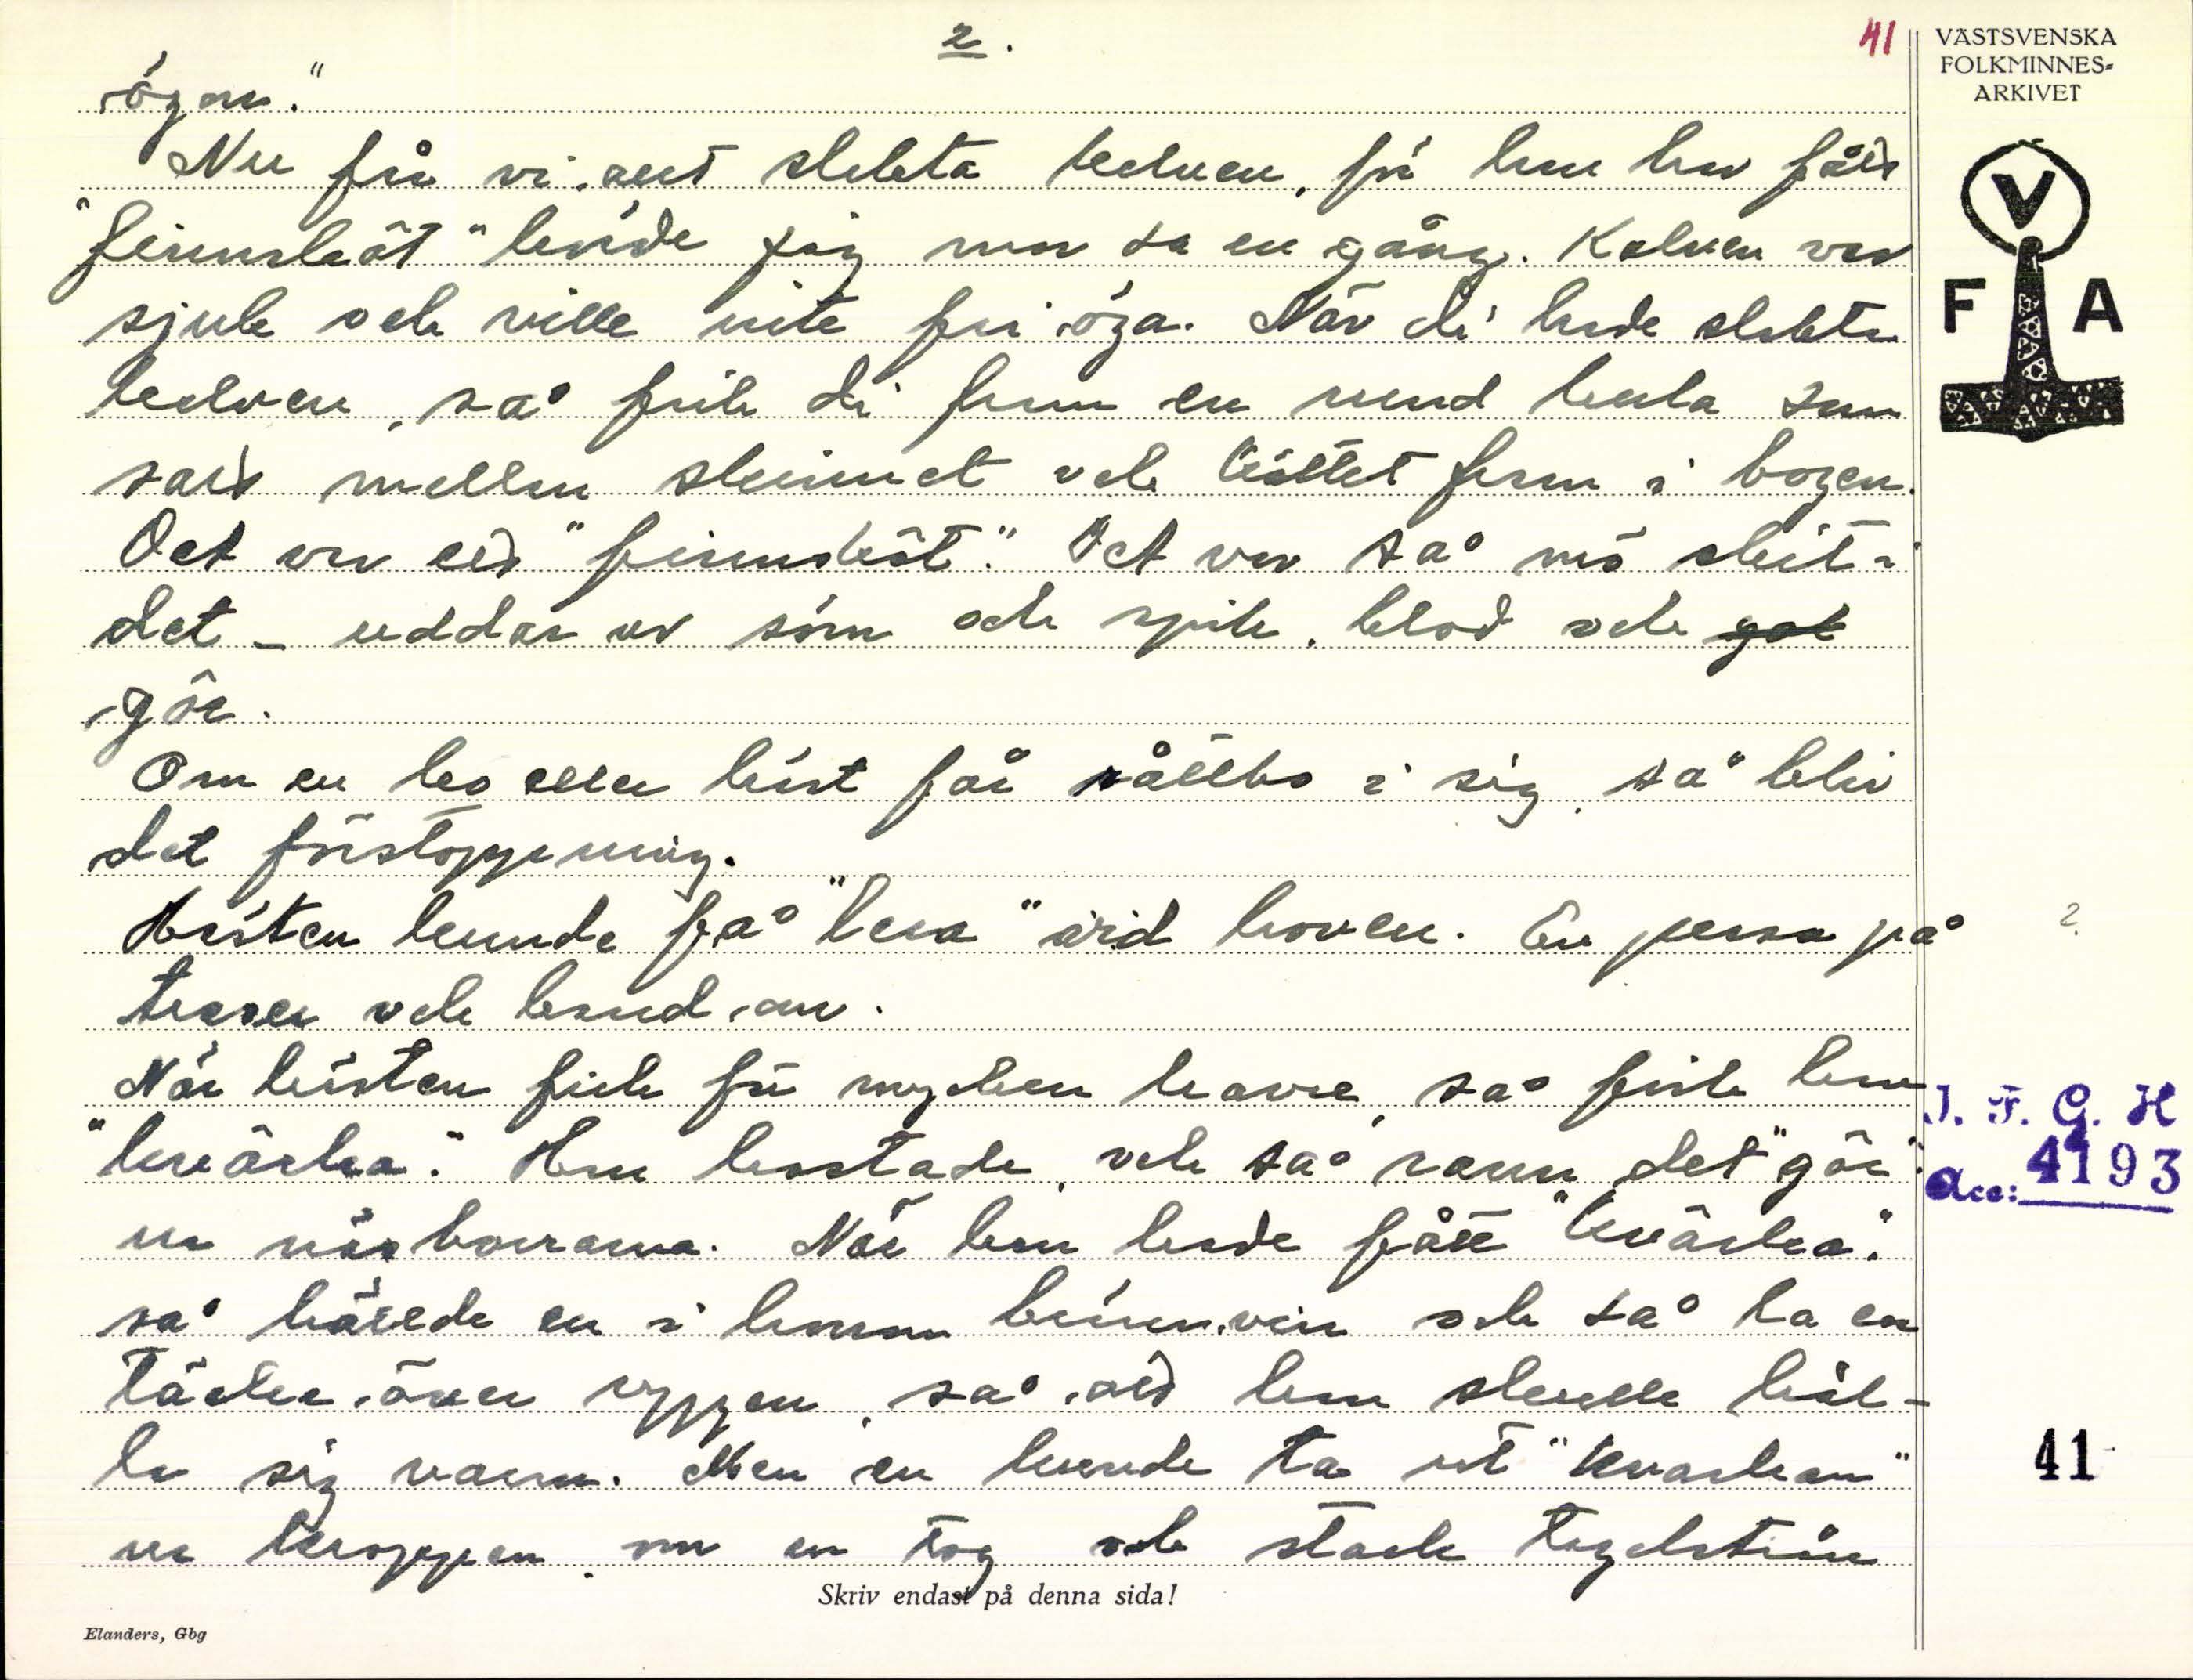 2.
41
VÄSTSVENSKA
FOLKMINNES-
ARKIVET
ögon."
Nu få vi allt slakta kalven, för han har fått
"finnskôt" hörde jag mor sa en gång. Kalven var
sjuk och ville inte för öga. När di hade slakta
kalven, så fick di fram en rund kula som
satt mellan skinnet och köttet fram i bogen.
Det var ett "finnskôt". Det var så mö skit i
det – uddar av söm och spik, blod och
gör.
Om en ko eller häst får råttbo i sig, så bliv
det förstoppning.
Hästen kunde få " " vid hoven. En på
och band om.
När hästen fick för mycken havre, så fick han
"kvärka". Han hostade, och så rann det "gör"
ur näsborrarna. När han hade fått "kvärka",
så hällde en i honom brännvin och så la en
täcke över ryggen, så att han skulle hål-
la sig varm. Men en kunde ta ut "kvarkan"
ur kroppen, om en tog och stack tegelstein
V
F A
?
I. F. G. H
Acc: 4193
41
Skriv endast på denna sida!
Elanders, Gbg